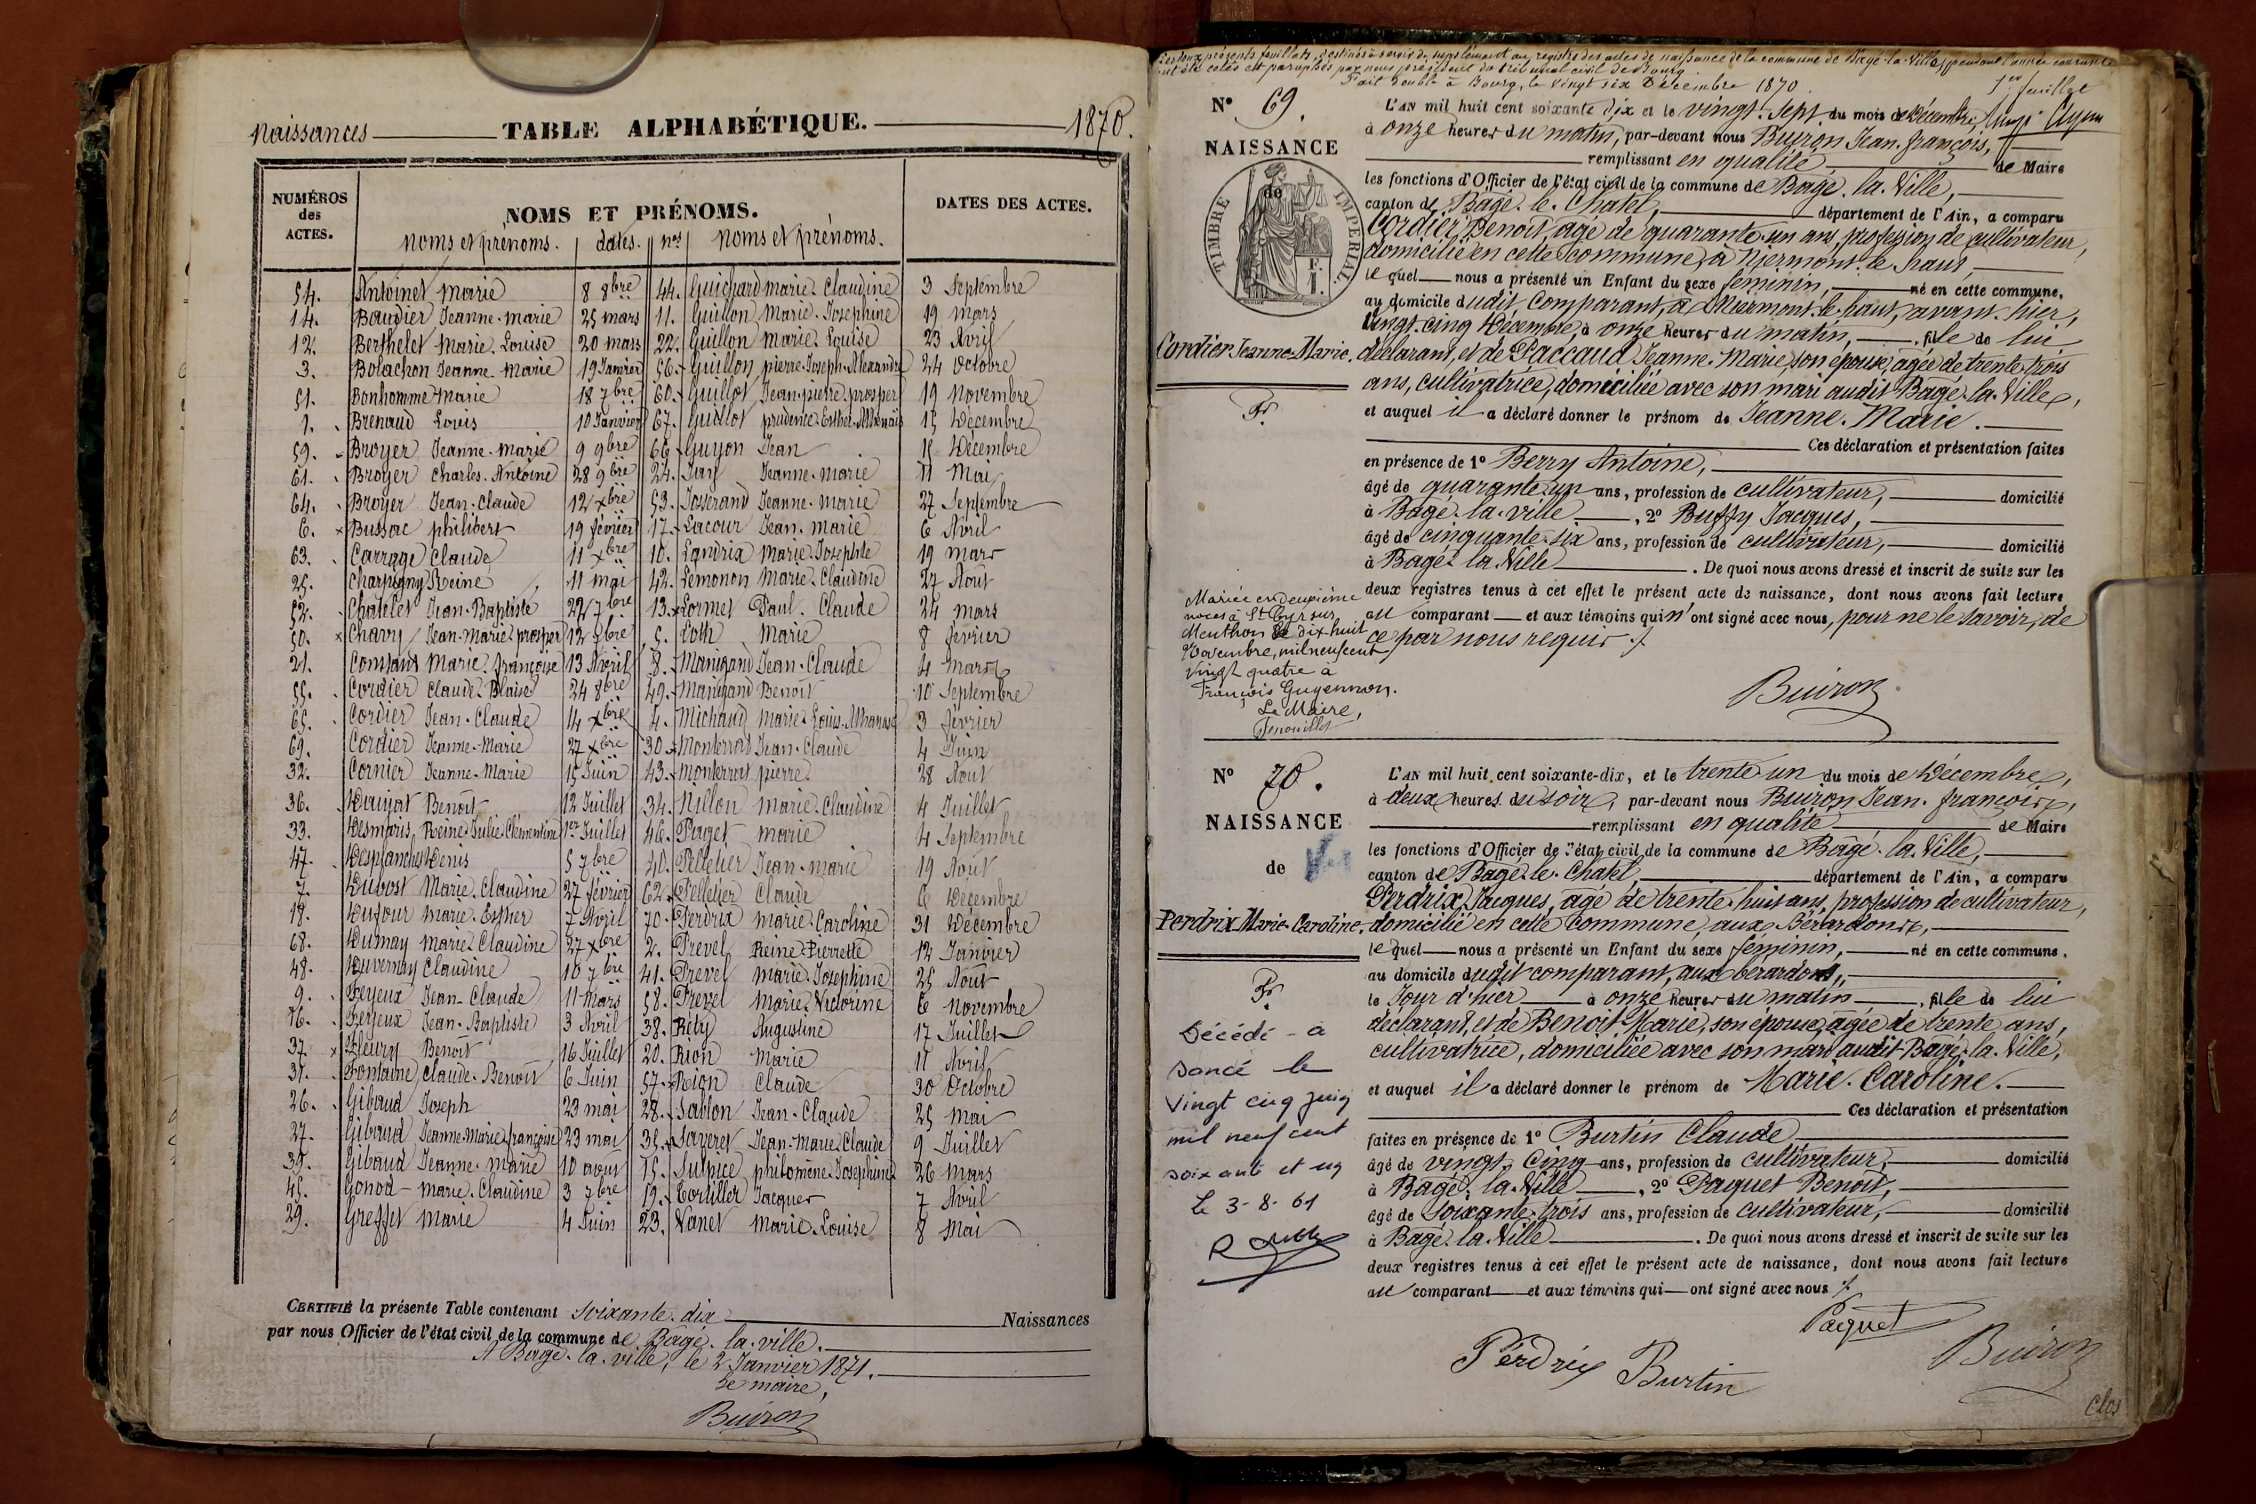 Naissances TABLE ALPHABÉTIQUE. 1870.
NUMÉROS des ACTES. NOMS ET PRÉNOMS. DATES DES ACTES.
noms et prénoms. dates. nos noms et prénoms.
54. Antoinet Marie 8 8bre 44. Guichard Marie-Claudine 3 Septembre
14. Baudier Jeanne-Marie 25 mars 11. Guillon Marie-Josephine 19 mars
12. Berthelet Marie-Louise 20 mars 22. Guillon Marie-Louise 23 Avril
3. Bolachon Jeanne-Marie 19 Janvier 56. Guillon pierre-Joseph-Alexandre 24 Octobre
51. Bonhomme Marie 18 7bre 60. Guillot Jean-pierre-prosper 19 Novembre
1. Brenaud Louis 10 Janvier 67. Guillot prudence-Esther 15 Décembre
59. Broyer Jeanne-Marie 9 9bre 66 Guyon Jean 15 Décembre
61. Broyer Charles-Antoine 28 9bre 24. Jay Jeanne-Marie 11 Mai
64. Broyer Jean-Claude 12 Xbre 53. Josserand Jeanne-Marie 27 Septembre
6. Bussac philibert 19 février 17. Lacour Jean-Marie 6 Avril
63. Carrage Claude 11 Xbre 10. Landria Marie-Josephte 19 mars
25. Charpigny Reine 11 mai 42. Lemonon Marie-Claudine 27 Août
52. Chatelet Jean-Baptiste 22 7bre 13. Lormet Paul-Claude 24 mars
50. Chavy Jean-Marie-prosper 12 7bre 5. Loth Marie 8 février
21. Constant Marie-françoise 13 Avril 8. Manigand Jean-Claude 4 Mars
55. Cordier Claude-Blaise 24 8bre 49. Manigand Benoit 10 Septembre
65. Cordier Jean-Claude 14 Xbre 4. Michaud Marie-Louis 3 février
69. Cordier Jeanne-Marie 27 Xbre 30. Monterrat Jean-Claude 4 Juin
32. Cornier Jeanne-Marie 15 Juin 43. Monterrat pierre 28 Août
36. Doujat Benoît 12 Juillet 34. Nillon Marie-Claudine 4 Juillet
33. Desmaris Reine-Julie-Clémentine 1er Juillet 46. Paget Marie 4 Septembre
47. Desplanches Denis 5 7bre 40. Pelletier Jean-Marie 19 Août
7. Dubost Marie-Claudine 27 février 62. Pelletier Claude 6 Décembre
18. Dufour Marie-Esther 7 Avril 70. Perdrix Marie-Caroline 31 Décembre
68. Dumay Marie-Claudine 27 Xbre 2. Prevel Reine-Pierrette 12 Janvier
48. Duvernay Claudine 10 7bre 41. Prevel Marie-Josephine 25 Août
9. Feyeux Jean-Claude 11 Mars 58. Prevel Marie-Victorine 6 Novembre
16. Feyeux Jean-Baptiste 3 Avril 38. Réty Augustine 17 Juillet
37. Fleury Benoit 16 Juillet 20. Rion Marie 11 Avril
31. Fontaine Claude-Benoit 6 Juin 57. Rion Claude 30 Octobre
26. Gibaud Joseph 23 mai 28. Sablon Jean-Claude 25 Mai
27. Gibaud Jeanne-Marie-françoise 23 mai 35. Saveret Jean-Marie-Claude 9 Juillet
39. Gibaud Jeanne-Marie 10 août 15. Sulpice philomène-Josephine 26 Mars
45. Gonod Marie-Claudine 3 7bre 19. Tortiller Jacques 7 Avril
29. Greffet Marie 4 Juin 23. Vanet Marie-Louise 8 Mai
CERTIFIÉ la présente Table contenant Soixante-dix Naissances
par nous Officier de l'état civil de la commune de Bâgé-la-ville.
A Bâgé-la-ville, le 2 Janvier 1871.
Le maire,
Buiron
présents feuillets, destinés à servir de supplément au registre des actes de naissance de la commune de Bâgé-la-Ville, pendant l'année courante
ont été cotés et paraphés par nous président du tribunal civil de Bourg.
Fait double à Bourg, le vingt six Décembre 1870.
1er feuillet
N° 69.
NAISSANCE
de
TIMBRE IMPERIAL
Cordier Jeanne-Marie.
L'AN mil huit cent soixante dix et le vingt-Sept du mois de Décembre,
à onze heures du matin, par-devant nous Buiron Jean-françois,
remplissant en qualité de Maire
les fonctions d'Officier de l'état civil de la commune de Bâgé-la-Ville,
canton de Bâgé-le-Chatel, département de l'Ain, a comparu
Cordier Benoît, âgé de quarante-un ans, profession de cultivateur,
domicilié en cette commune, à Niermont-le-haut,
le quel nous a présenté un Enfant du sexe féminin, né en cette commune,
au domicile dudit comparant, à Niermont-le-haut, avant-hier,
vingt-cinq Décembre, à onze heures du matin, fille de lui
déclarant, et de Paccaud Jeanne-Marie, son épouse, âgée de trente-trois
ans, cultivatrice, domiciliée avec son mari audit Bâgé-la-Ville,
et auquel il a déclaré donner le prénom de Jeanne-Marie.
Ces déclaration et présentation faites
en présence de 1° Berry Antoine,
âgé de quarante-un ans, profession de cultivateur, domicilié
à Bâgé-la-Ville, 2° Buffy Jacques,
âgé de cinquante-six ans, profession de cultivateur, domicilié
à Bâgé-la-Ville. De quoi nous avons dressé et inscrit de suite sur les
deux registres tenus à cet effet le présent acte de naissance, dont nous avons fait lecture
au comparant et aux témoins qui n'ont signé avec nous, pour ne le savoir, de
ce par nous requis.
Buiron
Mariée en deuxième
noces à St Cyr sur
Menthon le dix huit
Novembre, mil neuf cent
vingt quatre à
François Guyennon.
Le Maire,
Fenouillet
N° 70.
NAISSANCE
de
Perdrix Marie-Caroline.
L'AN mil huit cent soixante-dix, et le trente-un du mois de Décembre,
à deux heures du soir, par-devant nous Buiron Jean-françois,
remplissant en qualité de Maire
les fonctions d'Officier de l'état civil de la commune de Bâgé-la-Ville,
canton de Bâgé-le-Chatel, département de l'Ain, a comparu
Perdrix Jacques, âgé de trente-huit ans, profession de cultivateur,
domicilié en cette commune, aux Bérardons,
le quel nous a présenté un Enfant du sexe féminin, né en cette commune,
au domicile dudit comparant, aux bérardons,
le Jour d'hier à onze heures du matin, fille de lui
déclarant, et de Benoit Marie, son épouse, âgée de trente ans,
cultivatrice, domiciliée avec son mari audit Bâgé-la-Ville,
et auquel il a déclaré donner le prénom de Marie-Caroline.
Ces déclaration et présentation
faites en présence de 1° Burtin Claude
âgé de vingt-cinq ans, profession de cultivateur, domicilié
à Bâgé-la-Ville, 2° Paquet Benoit,
âgé de soixante-trois ans, profession de cultivateur, domicilié
à Bâgé-la-Ville. De quoi nous avons dressé et inscrit de suite sur les
deux registres tenus à cet effet le présent acte de naissance, dont nous avons fait lecture
au comparant et aux témoins qui ont signé avec nous
Décédé à
Sancé le
Vingt cinq Juin
mil neuf cent
soixante et un
le 3-8-61
Paquet
Perdrix Burtin Buiron
Clos